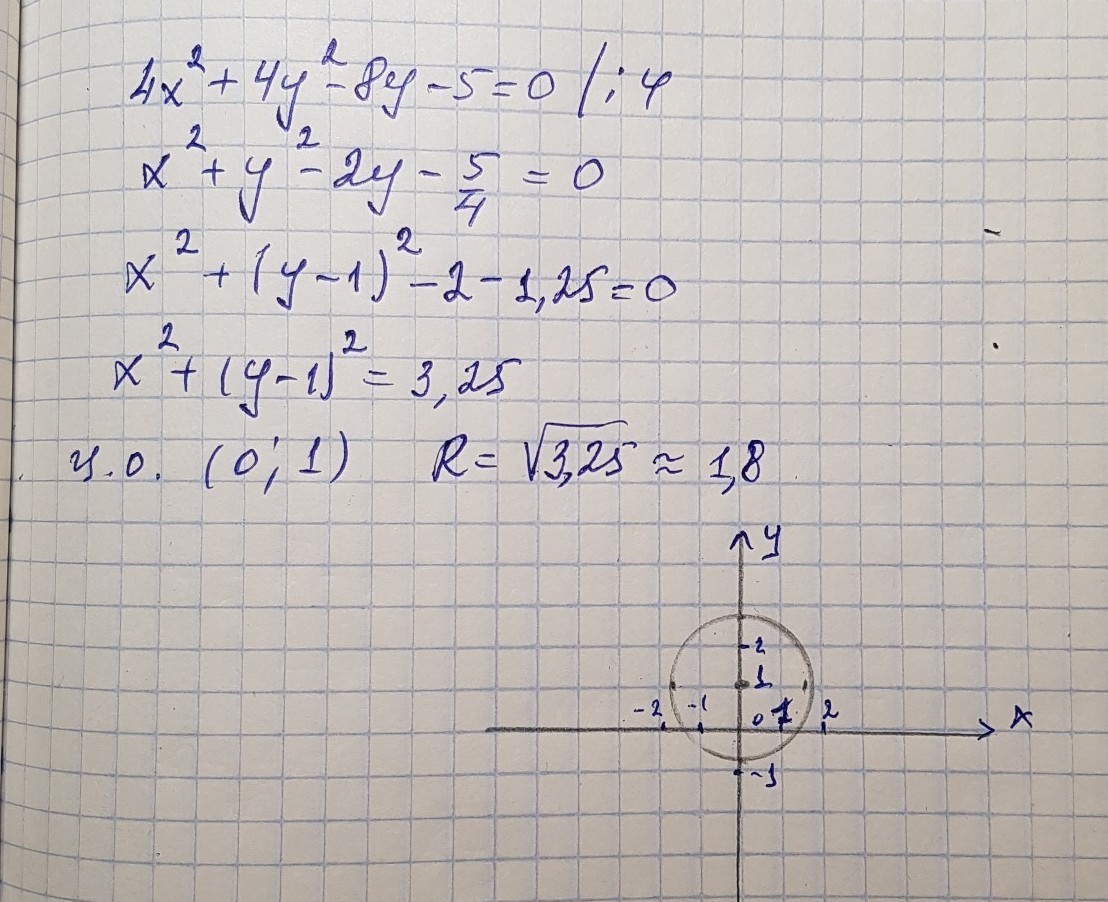 4x² + 4y² - 8y - 5 = 0 / : 4
x² + y² - 2y - 5/4 = 0
x² + (y - 1)² - 2 - 1,25 = 0
x² + (y - 1)² = 3,25
ц.о. (0; 1) R = √3,25 ≈ 1,8
y
2
1
-2 -1 0 1 2 x
-1